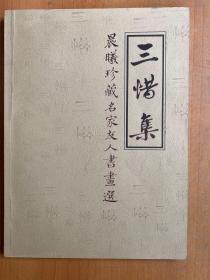 三惜集
晨曦珍藏名家友人書畫選